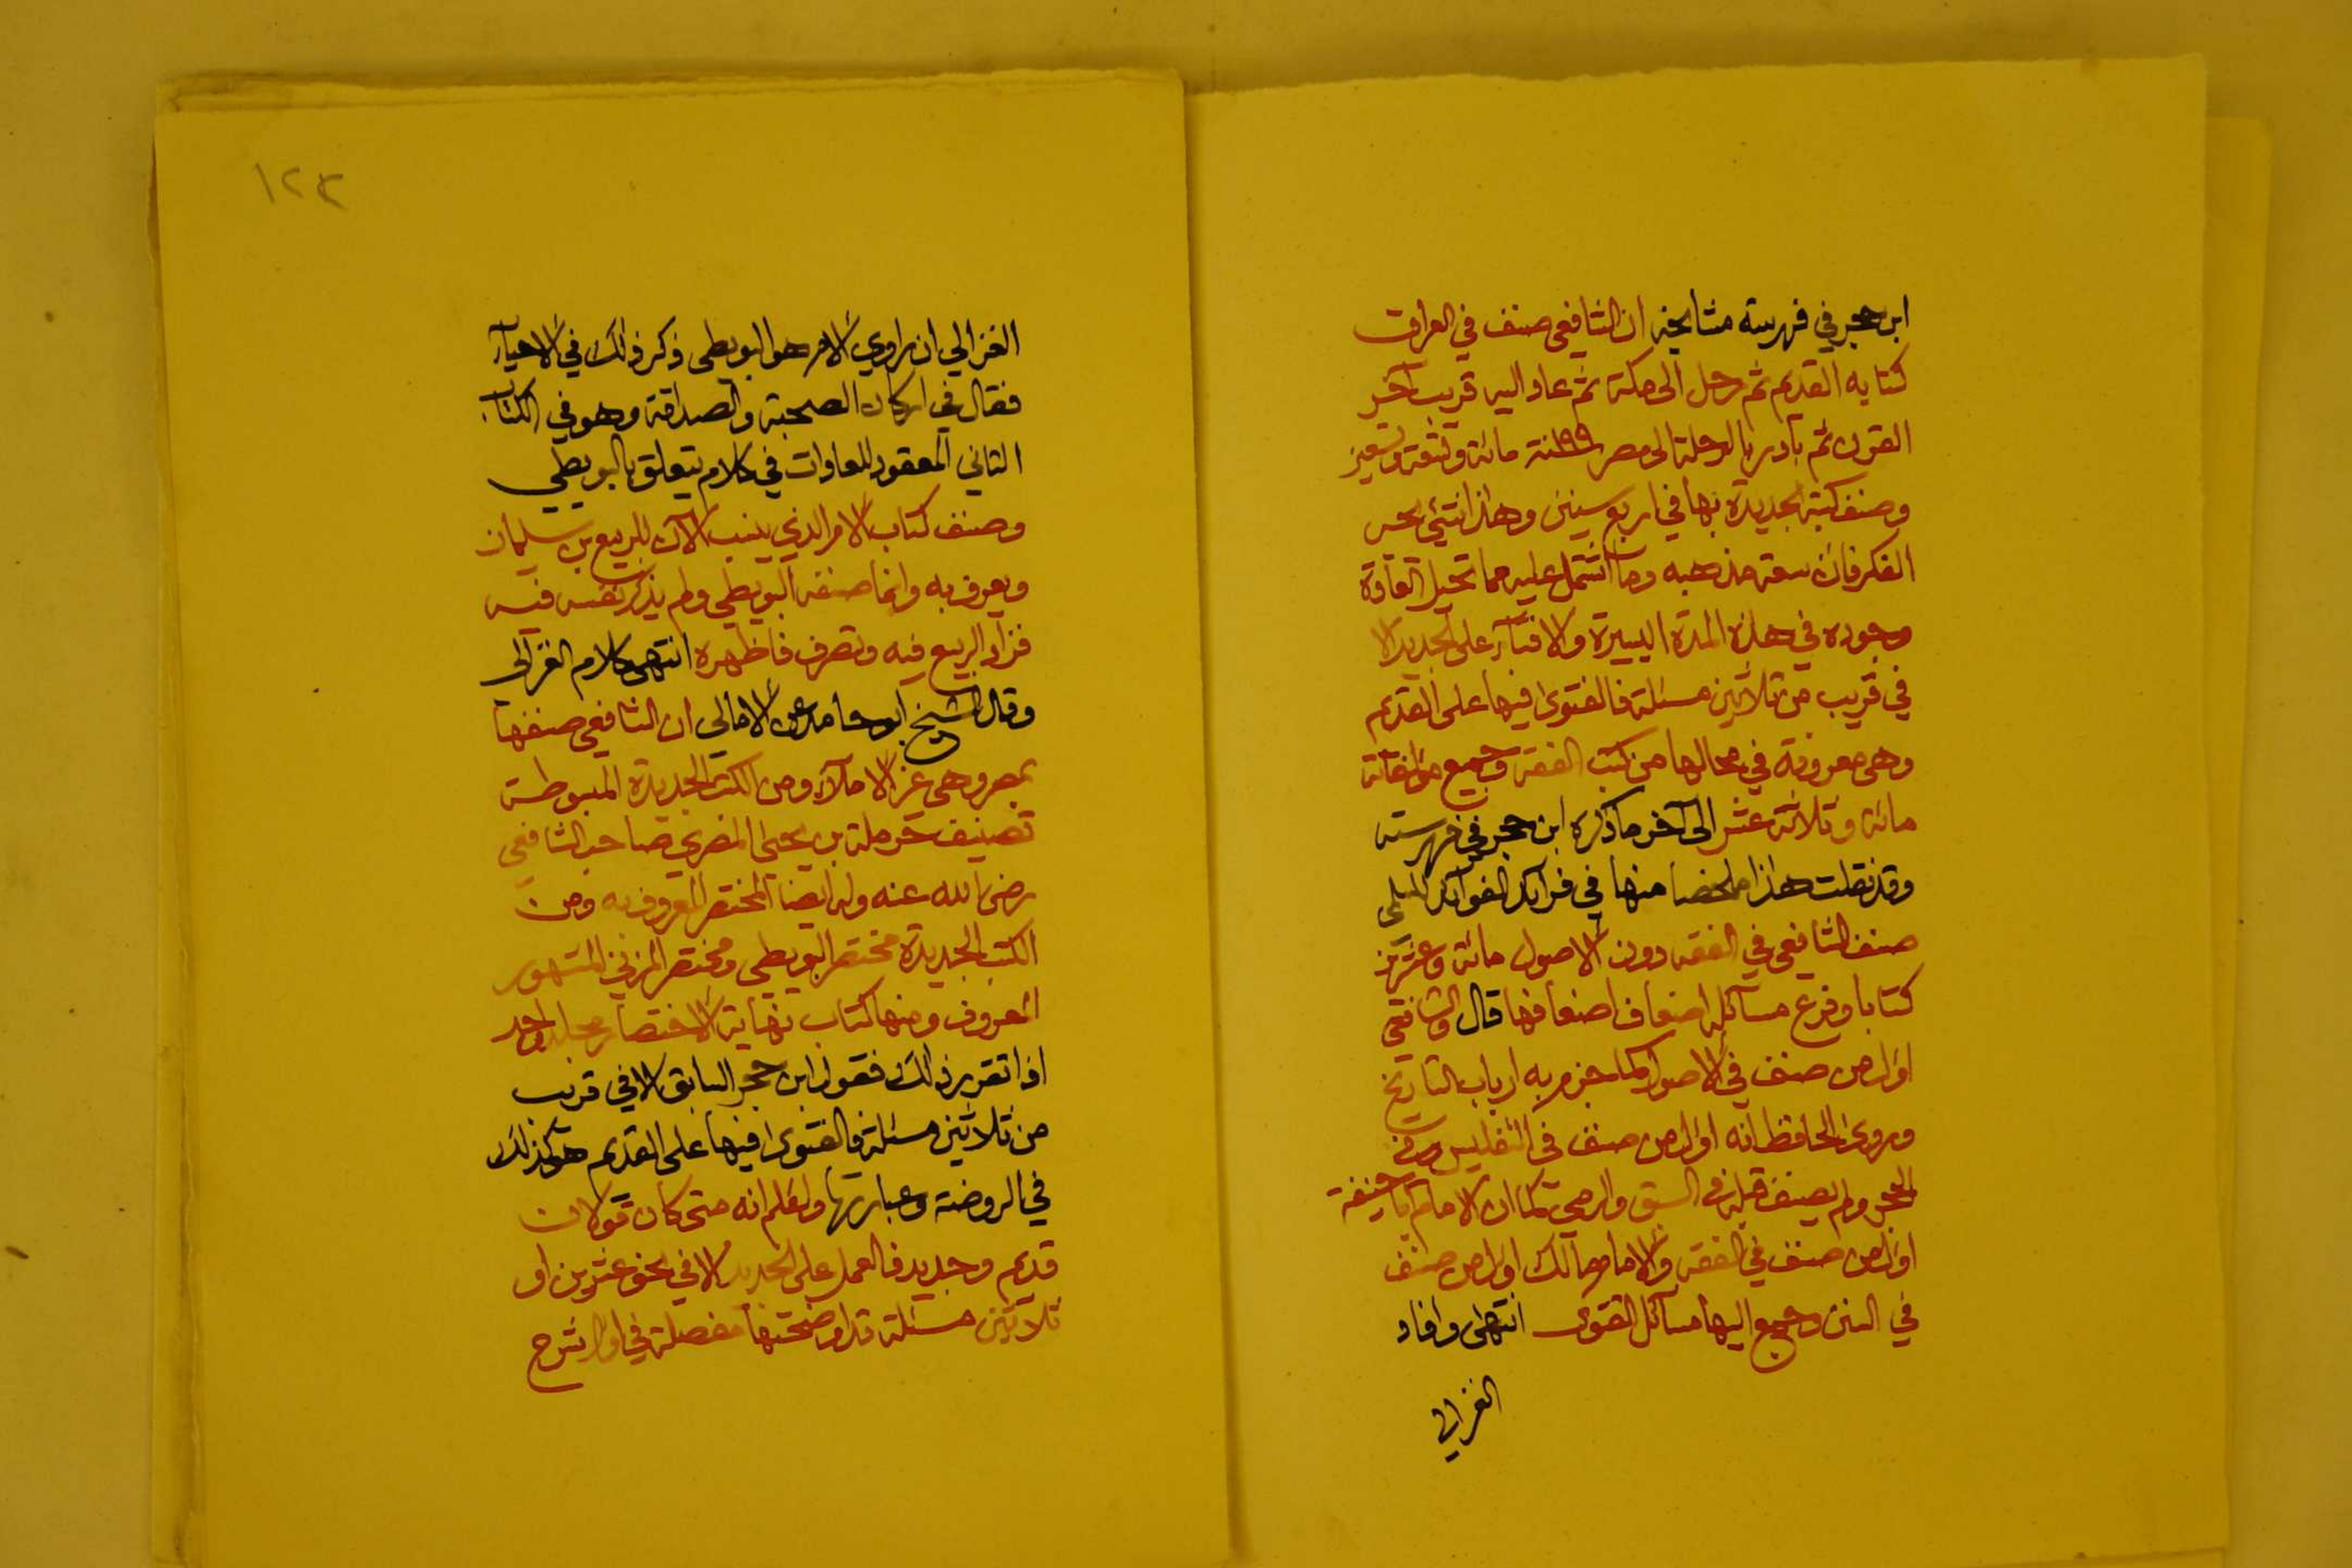 ابن حجر في فهرسة مشايخه ان الشافعي صنف في العراق
كتابه القديم ثم رحل الى مكة ثم عاد اليه قريب آخر
القرن ثم بادر بالرحلة الى مصر ١٩٩سنة مائة وتسعة وتسعين
وصنف كتبه الجديدة بها في اربع سنين وهذا شيئ يحير
الفكر فان سعة مذهبه وما اشتمل عليه مما تحيل العادة
وجوده في هذه المدة اليسيرة والافتآء على الجديد الا
في قريب من ثلاثين مسئلة فالفتوى فيها على القديم
وهي معروفة في محالها من كتب الفقه وجميع مؤلفاته
مائة وثلاثة عشر الى آخر ماذكره ابن حجر في فهرسته
وقد نقلت هذا ملخصا منها في فرايد الفوآيد
صنف الشافعي في الفقه دون الاصول مائة وعشرين
كتابا وفرع مسآئله اضعاف اضعافها قال والشافعي
اول من صنف في الاصول كما جزم به ارباب التاريخ
وروى الحافظ انه اول من صنف في التفليس وفي
الحجر ولم يصنف قبله في السبق والرمي كما ان الامام ابا حنيفة
اول من صنف في الفقه والامام مالك اول من صنف
في السنن وجمع اليها مسآئل الفتوى انتهى وافاد
الغزالي
١٢٣
الغزالي ان راوي الام هو البويطي ذكر ذلك في الاحيآء
فقال في اركان الصحبة والصداقة وهو في الكتاب
الثاني المعقود للعادات في كلام يتعلق بالبويطي
وصنف كتاب الام الذي ينسب الآن للربيع بن سليمان
ويعرف به وانما صنفه البويطي ولم يذكر نفسه فيه
فزاد الربيع فيه وتصرف فاظهره انتهى كلام الغزالي
وقال الشيخ ابو حامد عن الامالي ان الشافعي صنفها
بمصر وهي غير الاملآء ومن الكتب الجديدة المبسوطة
تصنيف حرملة بن يحيى المصري صاحب الشافعي
رضي الله عنه وله ايضا المختصر المعروف به ومن
الكتب الجديدة مختصر البويطي ومختصر المزني المشهور
المعروف ومنها كتاب نهاية الاختصار مجلد واحد
اذا تقرر ذلك فقول ابن حجر السابق الا في قريب
من ثلاثين مسئلة فالفتوى فيها على القديم هو كذلك
في الروضة وعبارتها ولنعلم انه متى كان قولان
قديم وجديد فالعمل على الجديد الا في نحو عشرين او
ثلاثين مسئلة قد اوضحتها مفصلة في اول شرح